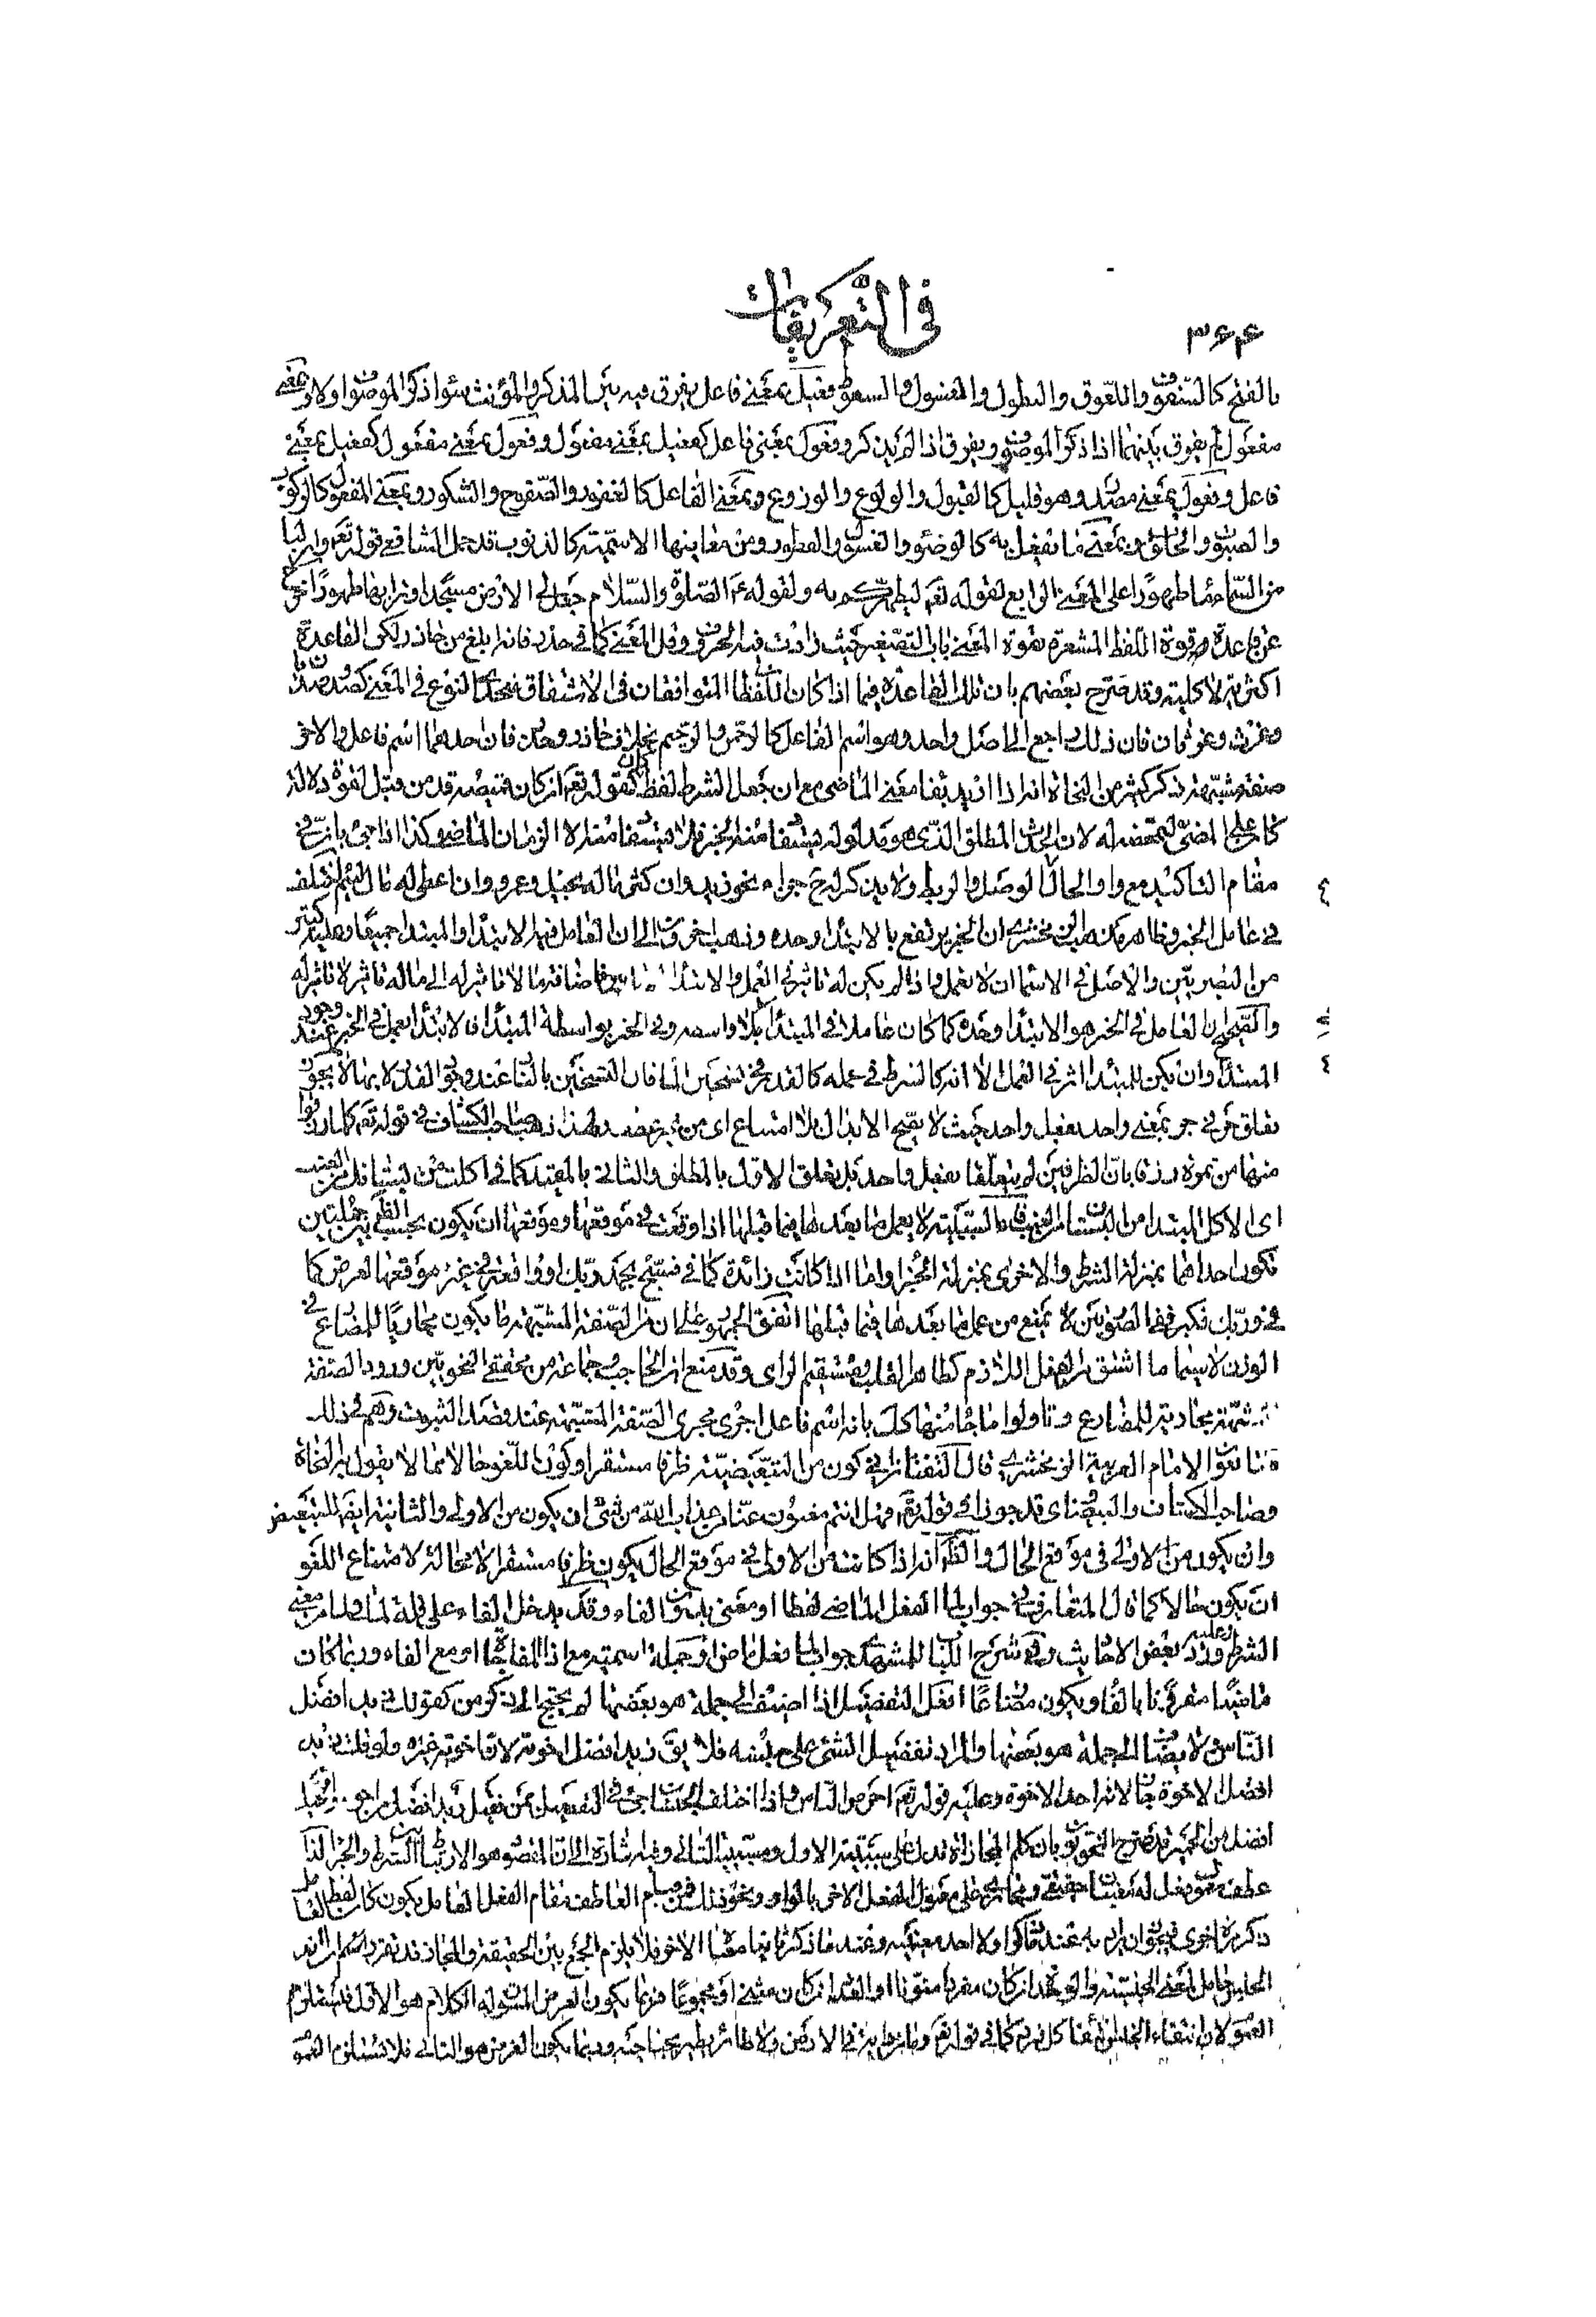 في التعريفات
٣٦۴
بالفتح كالسفوف واللعوق والبطول والغسول والسعوط فعيل بمعنى فاعل يفرق فيه بين المذكر والمؤنث سواء ذكر الموصوف اولا وبمعنى
مفعول لم يفرق بينهما اذا ذكر الموصوف ويفرق اذا لم يذكر وفعول بمعنى فاعل كفعيل بمعنى مفعول وفعول بمعنى مفعول كفعيل بمعنى
فاعل وفعول بمعنى مصدر وهو قليل كالقبول والولوع والوزوع وبمعنى الفاعل كالغفور والصفوح والشكور وبمعنى المفعول كالركوب
والضبوث والحلوب وبمعنى ما تفعل به كالوضوء والغسول والفطور ومن معانيها الاسمية كالذنوب قد حمل الشافعي قوله تعه وانزلنا
من السماء ماء طهورا على المعنى الرابع لقوله تعه ليطهركم به ولقوله عم الصلوة والسلام جعل لي الارض مسجدا وترابها طهورا خرج
عن قاعدة قوة اللفظ المشعرة بقوة المعنى باب التصغير حيث زادت فيه الحروف وقل المعنى كما في حذر فانه ابلغ من حاذر ولكن القاعدة
اكثرية لا كلية وقد صرح بعضهم بان تلك القاعدة فيما اذا كان اللفظان المتوافقان في الاشتقاق متحدي النوع في المعنى كصد وصديان
وغرث وغرثان فان ذلك راجع الى اصل واحد وهو اسم الفاعل كالرحمن والرحيم بخلاف حاذر وحذر فان احدهما اسم فاعل والاخر
صفة مشبهة ذكر كثير من النحاة انه اذا اريد بقاء معنى الماضي مع ان جعل الشرط لفظ كان كقوله تعه ان كان قميصه قد من قبل لقوة دلالة
كان على المضي لتمحضه له لان الحدث المطلق الذي هو مدلوله يستفاد منه الخبر فلا يستفاد منه الا الزمان الماضي وكذا اذا جيء بان في
مقام التاكيد مع واو الحال لوصل والربط ولا يذكر له ح جزاء نحو زيد وان كثر ماله بخيل وعمرو وان اعطي له مال لئيم اختلف
في عامل الخبر وظاهر مذهب الزمخشري ان الخبر يرتفع بالابتداء وحده وذهب اخرون الى ان العامل فيه الابتداء والمبتدا جميعا وعليه كثير
من البصريين والاصل في الاسماء ان لا تعمل واذا لم يكن له تاثير في العمل والابتداء
والصحيح ان العامل في الخبر هو الابتداء وحده كما كان عاملا في المبتدا بلا واسطة وفي الخبر بواسطة المبتدا فالابتداء يعمل في الخبر عند وجود
المبتدا وان لم يكن للمبتدا اثر في العمل الا انه كالشرط في عمله كالقدر في تسخين الماء فان التسخين بالنار عند وجود القدر لا بها لا يجوز
تعلق حرفي جر بمعنى واحد بفعل واحد حيث لا يصح الابدال
منها من ثمرة رزقا بان الظرفين لم يتعلقا بفعل واحد بل تعلق الاول بالمطلق والثاني بالمقيد كما في اكلت من بستانك من العنب
اى الاكل المبتدا من البستان من العنب فاء السببية لا يعمل ما بعدها فيما قبلها اذا وقعت في موقعها وموقعها ان يكون بحسب الظاهر بين جملتين
تكون احداهما بمنزلة الشرط والاخرى بمنزلة الجزاء واما اذا كانت زائدة كما في فسبح بحمد ربك او واقعة في غير موقعها لغرض كما
في وربك فكبر ففي الصورتين لا تمنع من عمل ما بعدها فيما قبلها اتفق الجمهور على ان من الصفة المشبهة ما يكون مجاريا للمضارع في
الوزن لا سيما ما اشتق من الفعل اللازم كطاهر القلب ومستقيم الراى وقد منع ابن الحاجب وجماعة من محققي النحويين ورود الصفة
المشبهة مجارية للمضارع وتاولوا ما جاء منها كذلك بانه اسم فاعل اجرى مجرى الصفة المشبهة عند قصد الثبوت وهم في ذلك
تابعوا الامام العربية الزمخشري قال التفتازاني كون من التبعيضية ظرفا مستقرا وكون اللغو حالا مما لا يقول به النحاة
وصاحب الكشاف والبيضاوى قد جوزا في قوله تعه فهل انتم مغنون عنا من عذاب الله من شئ ان يكون من الاولى والثانية ايضا للتبعيض
وان يكون من الاولى في موقع الحال والظاهر انه اذا كانت من الاولى في موقع الحال يكون ظرفا مستقرا لا محالة لامتناع اللغو
ان يكون حالا كما قال المتعارف في جواب لما الفعل الماضي لفظا او معنى بدون الفاء وقد يدخل الفاء على قلة لما في لما من معنى
الشرط وعليه ورد بعض الاحاديث وفي شرح اللباب للمشهدى جواب لما فعل ماض او جملة اسمية مع اذا المفاجاة او مع الفاء وربما كان
ماضيا مقرونا بالفاء ويكون مضارعا افعل التفضيل اذا اضيف الى جملة هو بعضها لم يحتج الى ذكر من كقولك زيد افضل
الناس ولا يضاف الى جملة هو بعضها والمراد تفضيل الشئ على جنسه فلا يق زيد افضل اخوته لان اخوته غيره ولو قلت زيد
افضل الاخوة جاز لانه احد الاخوة وعليه قوله تعه احرص الناس واذا اختلف الجنسان جئ في التفضيل بمن
افضل من الحمير قد صرح النحويون بان كلم المجازاة تدل على سببية الاول ومسببية الثاني وفيه اشارة الى ان المقصود هو الارتباط بين الشرط والجزاء اذا
عطف معمول فعل له معنيان حقيقي ومجازى على معمول الفعل الاخر بالواو ونحو ذلك من
ذكر مرة اخرى فيجوز ان يراد به عند ما ذكر اولا احد معنييه وعند ما ذكر ثانيا معناه الاخر فلا يلزم الجمع بين الحقيقة والمجاز قد تقرر
الجنس حامل لمعنى الجنسية والوحدة ان كان مفردا منونا او العدد ان كان مثنى او مجموعا فربما يكون الغرض المسوق له الكلام هو الاول فيستلزم
العموم لان انتفاء الجنس انتفاء كل فرد كما في قوله تعه وما من دابة في الارض ولا طائر يطير بجناحيه وربما يكون الغرض هو الثاني فلا يستلزم العموم